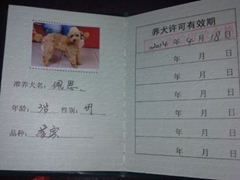 准养犬名：佩恩
年龄：3岁 性别：
品种：贵宾
养犬许可有效期
2014年4月18日
年 月 日
年 月 日
年 月 日
年 月 日
年 月 日
年 月 日